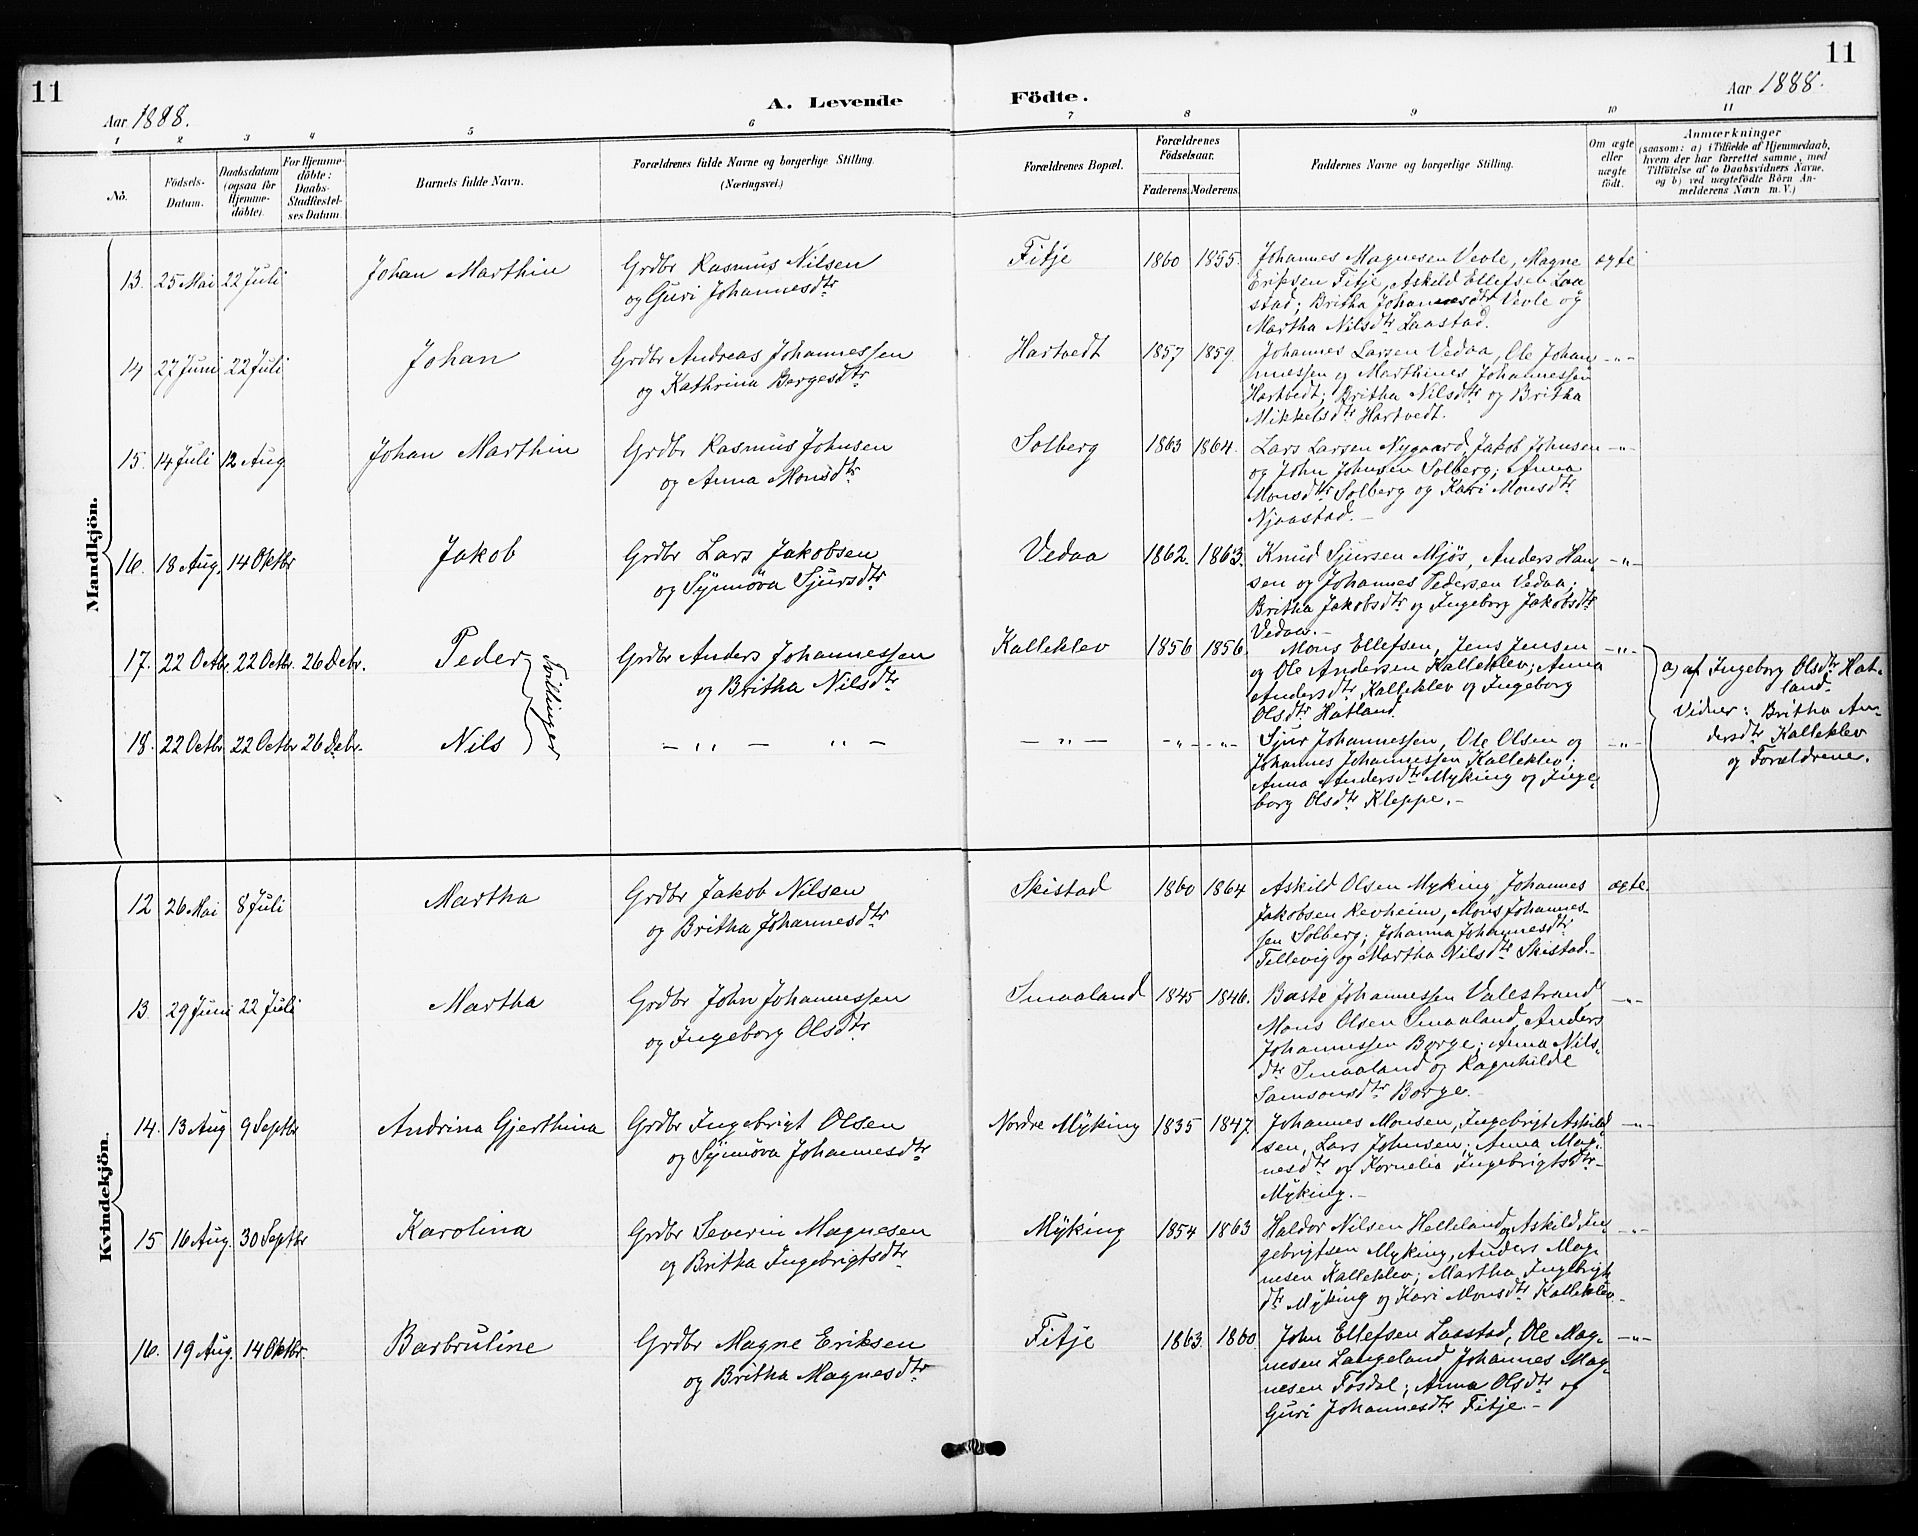 11
11
Aar 1888.
A. Levende
Födte.
Aar 1888.
1 2 3 4 5 6 7 8 9 10 11
No.
Födsels-
Datum.
Daabsdatum
(ogsaa for
Hjemme-
döbte).
For Hjemme-
döbte:
Daabs-
Stadfæstel-
ses Datum.
Barnets fulde Navn.
Forældrenes fulde Navne og borgerlige Stilling.
(Næringsvei.)
Forældrenes Bopæl.
Forældrenes
Födselsaar.
Faderens. Moderens.
Faddernes Navne og borgerlige Stilling.
Om ægte
eller
uægte
födt.
Anmærkninger
(saasom: a) i Tilfælde af Hjemmedaab,
hvem der har forrettet samme, med
Tilföielse af to Daabsvidners Navne,
og b) ved uægtefödte Börn An-
melderens Navn m. V.)
Mandkjön.
13. 25 Mai 22 Juli Johan Marthin
Grdbr Rasmus Nilsen
og Guri Johannesdtr
Fitje 1860 1855.
Johannes Magnesen Vevle, Magne
Eriksen Fitje, Askild Ellefsen Laa
stad; Britha Johannesdtr Vevle og
Martha Nilsdtr Laastad.
ægte
14 27 Juni 22 Juli Johan
Grdbr Andreas Johannessen
og Kathrina Børgesdtr
Hartvedt 1857 1859
Johannes Larsen Vedaa, Ole Johan
nnessen og Marthines Johannessen
Hartvedt; Britha Nilsdtr og Britha
Mikkelsdtr Hartvedt.
-"-
15. 14 Juli 12 Aug Johan Marthin
Grdbr Rasmus Johnsen
og Anna Monsdtr
Solberg 1863 1864.
Lars Larsen Nygaard, Jakob Johnsen
og John Johnsen Solberg; Anna
Monsdtr Solberg og Kari Monsdtr
Njaastad.-
-"-
16. 18 Aug. 14 Oktbr Jakob
Grdbr Lars Jakobsen
og Synnöva Sjursdtr
Vedaa 1862. 1863.
Knud Sjursen Mjös, Anders Han-
sen og Johannes Pedersen Vedaa;
Britha Jakobsdtr og Ingeborg Jakobsdtr
Vedaa.-
-"-
17. 22 Octbr. 22 Octbr. 26 Debr. Peder
Tvillinger
Grdbr Anders Johannessen
og Britha Nilsdtr
Kalleklev 1856 1856.
Mons Ellefsen, Jens Jensen
og Ole Andersen Kalleklev; Anna
Andersdtr Kalleklev og Ingeborg
Olsdtr Hatland.
-"-
a) af Ingeborg Olsdtr Hat-
land.
Vidner: Britha An-
dersdtr Kalleklev
og Forældrene.
18. 22 Octbr 22 Octbr 26 Debr. Nils
- " - " -
- " - -"- -"-
Sjur Johannessen, Ole Olsen og
Johannes Johannessen Kalleklev;
Anna Andersdtr Myking og Inge-
borg Olsdtr Kleppe.-
-"-
Kvindekjön.
12 26 Mai 8 Juli Martha
Grdbr Jakob Nilsen
og Britha Johannesdtr
Skistad 1860 1864
Askild Olsen Myking, Johannes
Jakobsen Revheim, Mons Johannes-
sen Solberg; Johanna Johannesdtr
Tellevig og Martha Nilsdtr Skistad.-
ægte
13 29 Juni 22 Juli Martha
Grdbr John Johannessen
og Ingeborg Olsdtr
Smaaland 1845 1846.
Baste Johannessen Valestrand,
Mons Olsen Smaaland, Anders
Johannessen Borge; Anna Nils-
dtr Smaaland og Ragnhilde
Samsonsdtr Borge.-
-"-
14. 13 Aug 9 Septbr Andrina Gjerthina
Grdbr Ingebrigt Olsen
og Synnöva Johannesdtr
Nordre Myking 1835 1847.
Johannes Monsen, Ingebrigt Askild
sen, Lars Johnsen; Anna Mag-
nesdtr og Kornelia Ingebrigtsdtr-
Myking.-
-"-
15 16 Aug. 30 Septbr Karolina
Grdbr Severin Magnesen
og Britha Ingebrigtsdtr
Myking 1854 1863
Haldor Nilsen Helleland og Askild In-
gebrigtsen Myking, Anders Mag-
nesen Kalleklev; Martha Ingebrigts
dtr Myking og Kari Monsdtr Kalleklev.
-"-
16. 19 Aug. 14 Oktbr. Barbruline
Grdbr Magne Eriksen
og Britha Magnesdtr
Fitje 1863. 1860
John Ellefsen Laastad, Ole Mag-
nesen Langeland, Johannes Mag-
nesen Fosdal; Anna Olsdtr og
Guri Johannesdtr Fitje.-
-"-